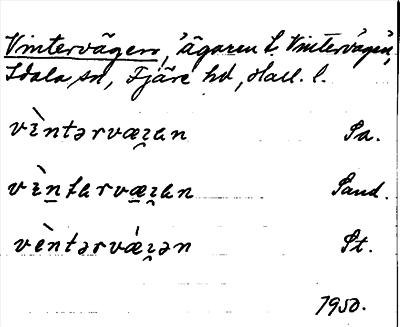 Vintervägen, 'ägaren t. Vintervägen',
Idala sn, Fjäre hd, Hall. l.
vìntərvæɪ̯an Sa.
vìn̲tarvæ̲ɪ̯an Sand.
vèntərvǽɪ̯ən St.
1950.